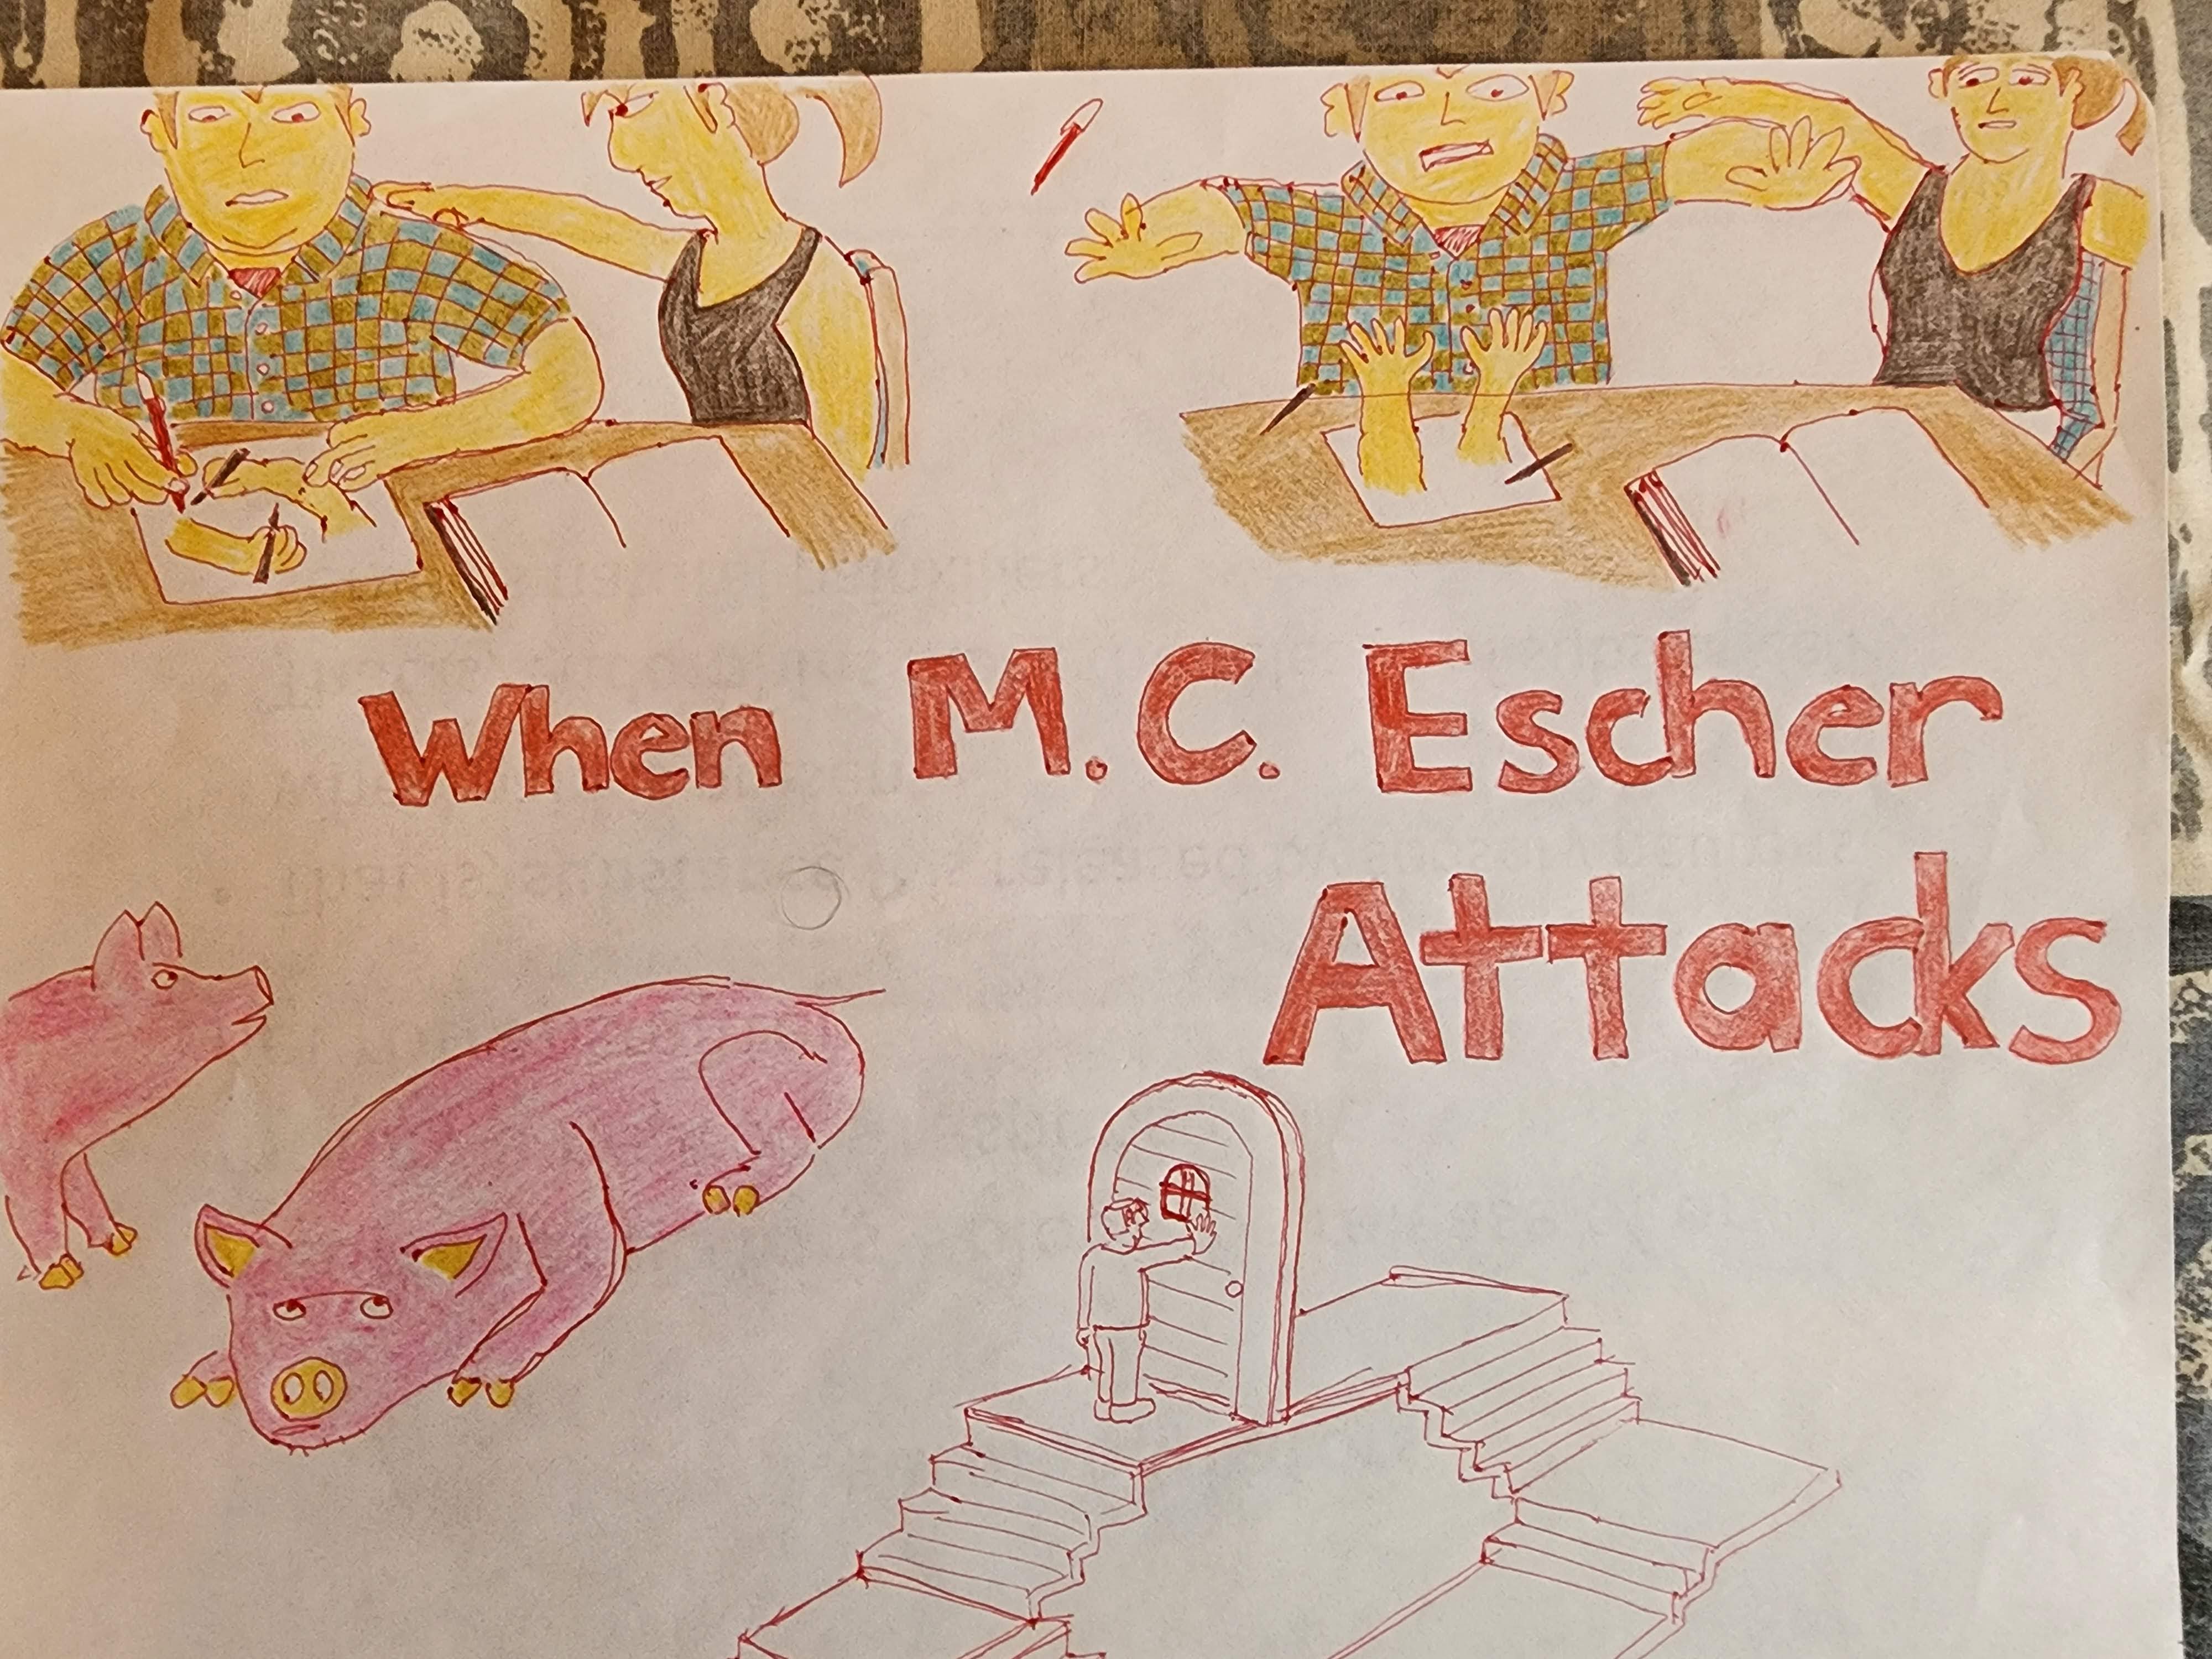 When M.C. Escher
Attacks